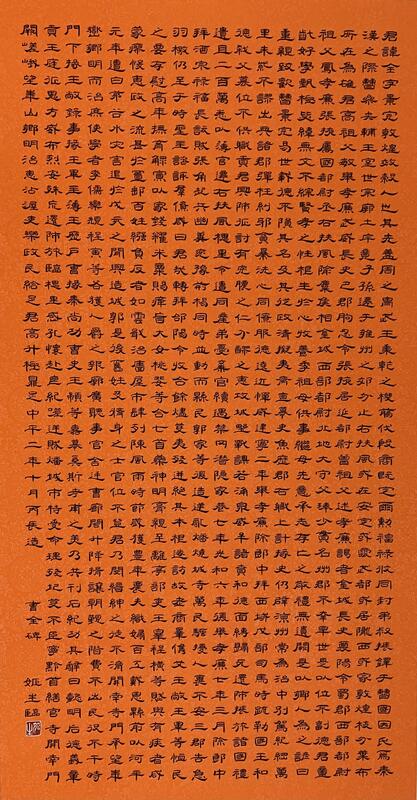 君諱全字景完敦煌效穀人也其先蓋周之胄武王秉乾之機翦伐殷商既定爾勳福祿攸同封弟叔振鐸于曹國因氏焉秦
漢之際曹參夾輔王室世宗廓土斥竟子孫遷于雍州之郊分止右扶風或在安定或處武都或居隴西或家敦煌枝分葉布
所在為雄君高祖父敏舉孝廉武威長史巴郡朐忍令張掖居延都尉曾祖父述孝廉謁者金城長史夏陽令蜀郡西部都尉
祖父鳳孝廉張掖屬國都尉丞右扶風隃麋侯相金城西部都尉北地大守父琫少貫名州郡不幸早世是以位不副德君童
齔好學甄極毖緯無文不綜賢孝之性根生於心收養季祖母供事繼母先意承志存亡之敬禮無遺闕是以鄉人為之諺曰
重親致歡曹景完易世載德不隕其名及其從政清擬夷齊直慕史魚歷郡右職上計掾史仍辟涼州常為治中別駕紀綱萬
里朱紫不謬出典諸郡彈枉糾邪貪暴洗心同僚服德遠近憚威建寧二年舉孝廉除郎中拜西域戊部司馬時疏勒國王和
德弒父篡位不供職貢君興師征討有吮膿之仁分醪之惠攻城野戰謀若涌泉威牟諸賁和德面縛歸死還師振旅諸國禮
遺且二百萬悉以薄官遷右扶風槐里令遭同產弟憂棄官續遇禁冈潛隱家巷七年光和六年復舉孝廉七年三月除郎中
拜酒泉祿福長訞賊張角起兵幽冀兗豫荊楊同時並動而縣民郭家等復造逆亂燔燒城寺萬民騷擾人裹不安三郡告急
羽檄仍至于時聖主諮諏群僚咸曰君哉轉拜郃陽令收合餘燼芟夷殘迸絕其本根遂訪故老商量儁艾王敞王畢等恤民
之要存慰高年撫育鰥寡以家錢糴米粟賜癃盲大女桃婓等合七首藥神明膏親至離亭部吏王宰程橫等賦與有疾者咸
蒙瘳悛惠政之流甚於置郵百姓繈負反者如雲戢治廧屋市肆列陳風雨時節歲獲豐年農夫織婦百工戴恩縣前以河平
元年遭白茅谷水災害退於戊亥之間興造城郭是後舊姓及修身之士官位不登君乃閔縉紳之徒不濟開南寺門承望華
嶽鄉明而治庶使學者李儒欒規程寅等各獲人爵之報廓廣聽事官舍廷曹廊閤升降揖讓朝覲之階費不出民役不干時
門下掾王敞錄事掾王畢主簿王歷戶曹掾秦尚功曹史王顓等嘉慕奚斯考甫之美乃共刊石紀功其辭曰懿明后德義章
貢王庭征鬼方威布烈安殊荒還師旅臨槐里感孔懷赴喪紀嗟逆賊燔城市特受命理殘圮芟不臣寧黔首繕官寺開南門
闕嵯峨望華山鄉明治惠沾渥吏樂政民給足君高升極鼎足中平二年十月丙辰造